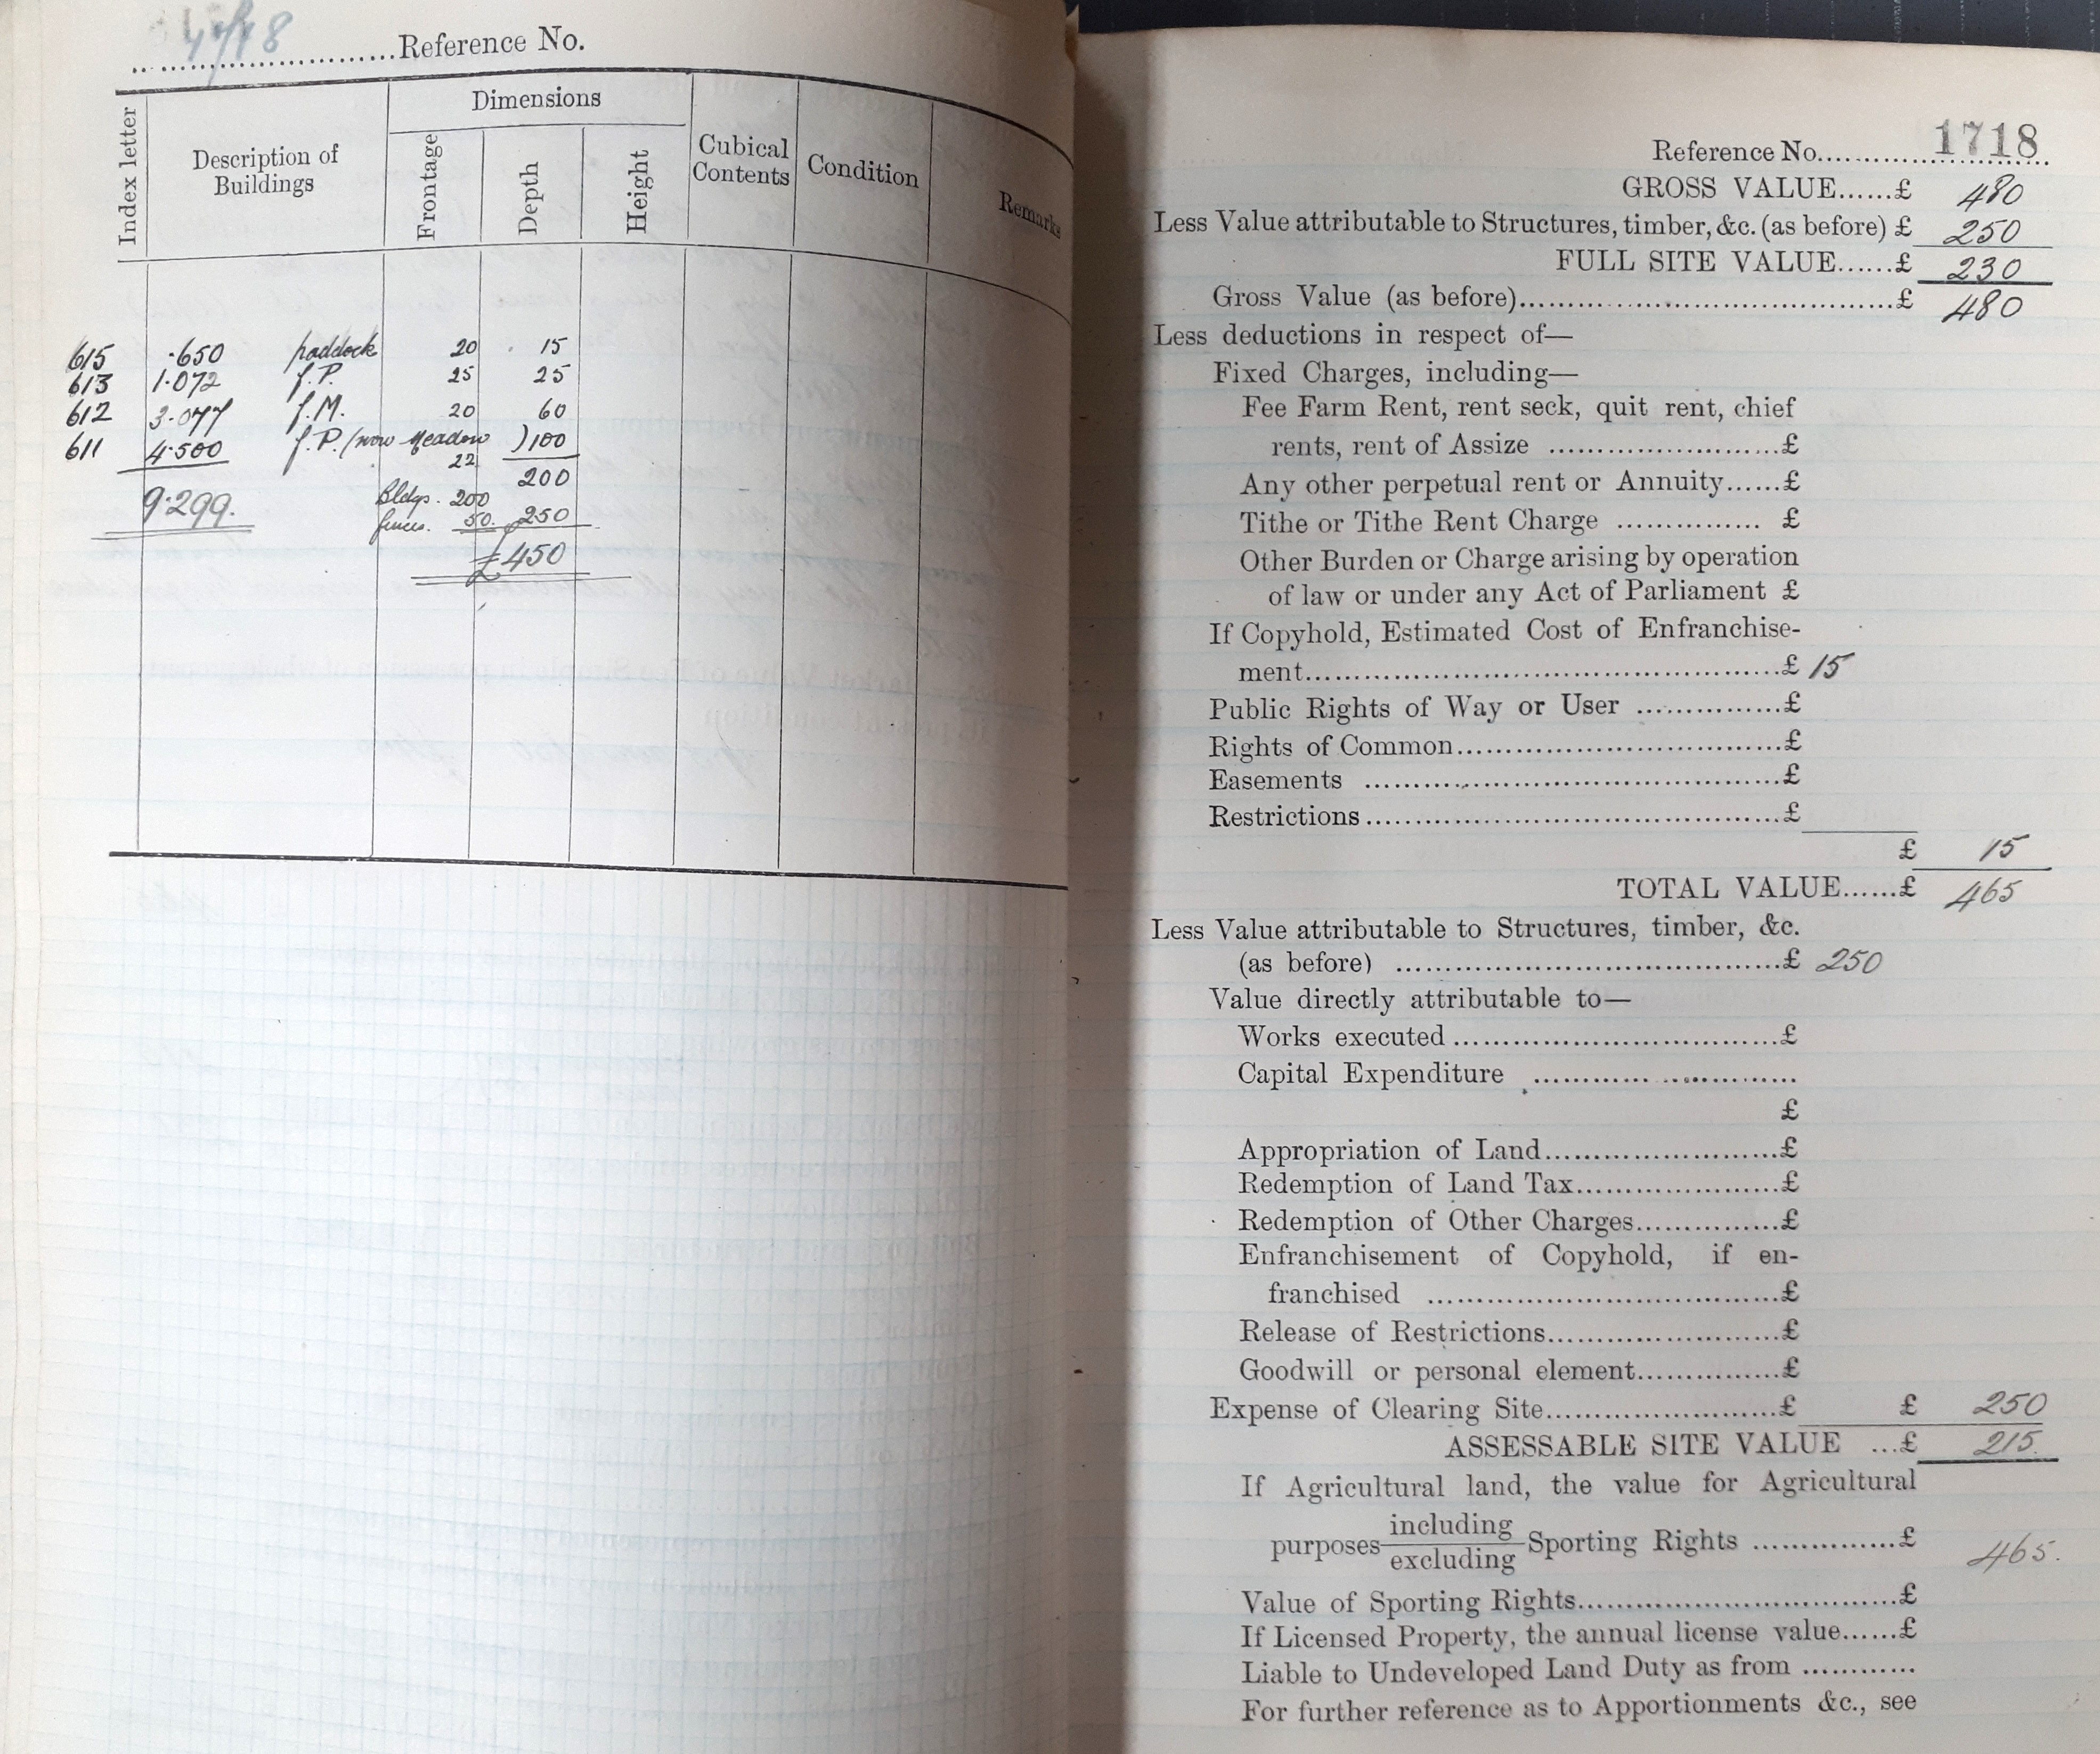 1718 Reference No.
Index letter
Description of Buildings
Dimensions
Frontage
Depth
Height
Cubical Contents
Condition
Remarks
615 ·650 paddock 20 15
613 1·072 f.P. 25 25
612 3·077 f.M. 20 60
611 4·500 f.P. (now Meadow )100
22
200
9·299. Bldgs. 200
fences. 50. 250
£450
Reference No. 1718
GROSS VALUE......£ 480
Less Value attributable to Structures, timber, &c. (as before) £ 250
FULL SITE VALUE......£ 230
Gross Value (as before)......£ 480
Less deductions in respect of—
Fixed Charges, including—
Fee Farm Rent, rent seck, quit rent, chief
rents, rent of Assize ......£
Any other perpetual rent or Annuity......£
Tithe or Tithe Rent Charge ...... £
Other Burden or Charge arising by operation
of law or under any Act of Parliament £
If Copyhold, Estimated Cost of Enfranchise-
ment......£ 15
Public Rights of Way or User ......£
Rights of Common......£
Easements ......£
Restrictions......£
£ 15
TOTAL VALUE......£ 465
Less Value attributable to Structures, timber, &c.
(as before) ......£ 250
Value directly attributable to—
Works executed......£
Capital Expenditure ......
£
Appropriation of Land......£
Redemption of Land Tax......£
Redemption of Other Charges......£
Enfranchisement of Copyhold, if en-
franchised ......£
Release of Restrictions......£
Goodwill or personal element......£
Expense of Clearing Site......£ £ 250
ASSESSABLE SITE VALUE ...£ 215.
If Agricultural land, the value for Agricultural
purposes including
excluding Sporting Rights ......£ 465.
Value of Sporting Rights......£
If Licensed Property, the annual license value......£
Liable to Undeveloped Land Duty as from ......
For further reference as to Apportionments &c., see